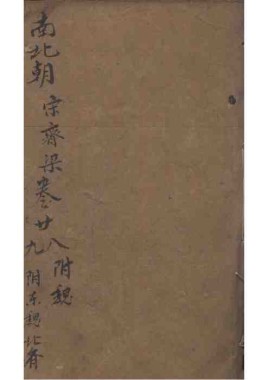 南北朝
宋齊梁卷廿八 附魏
九 附东魏北齊